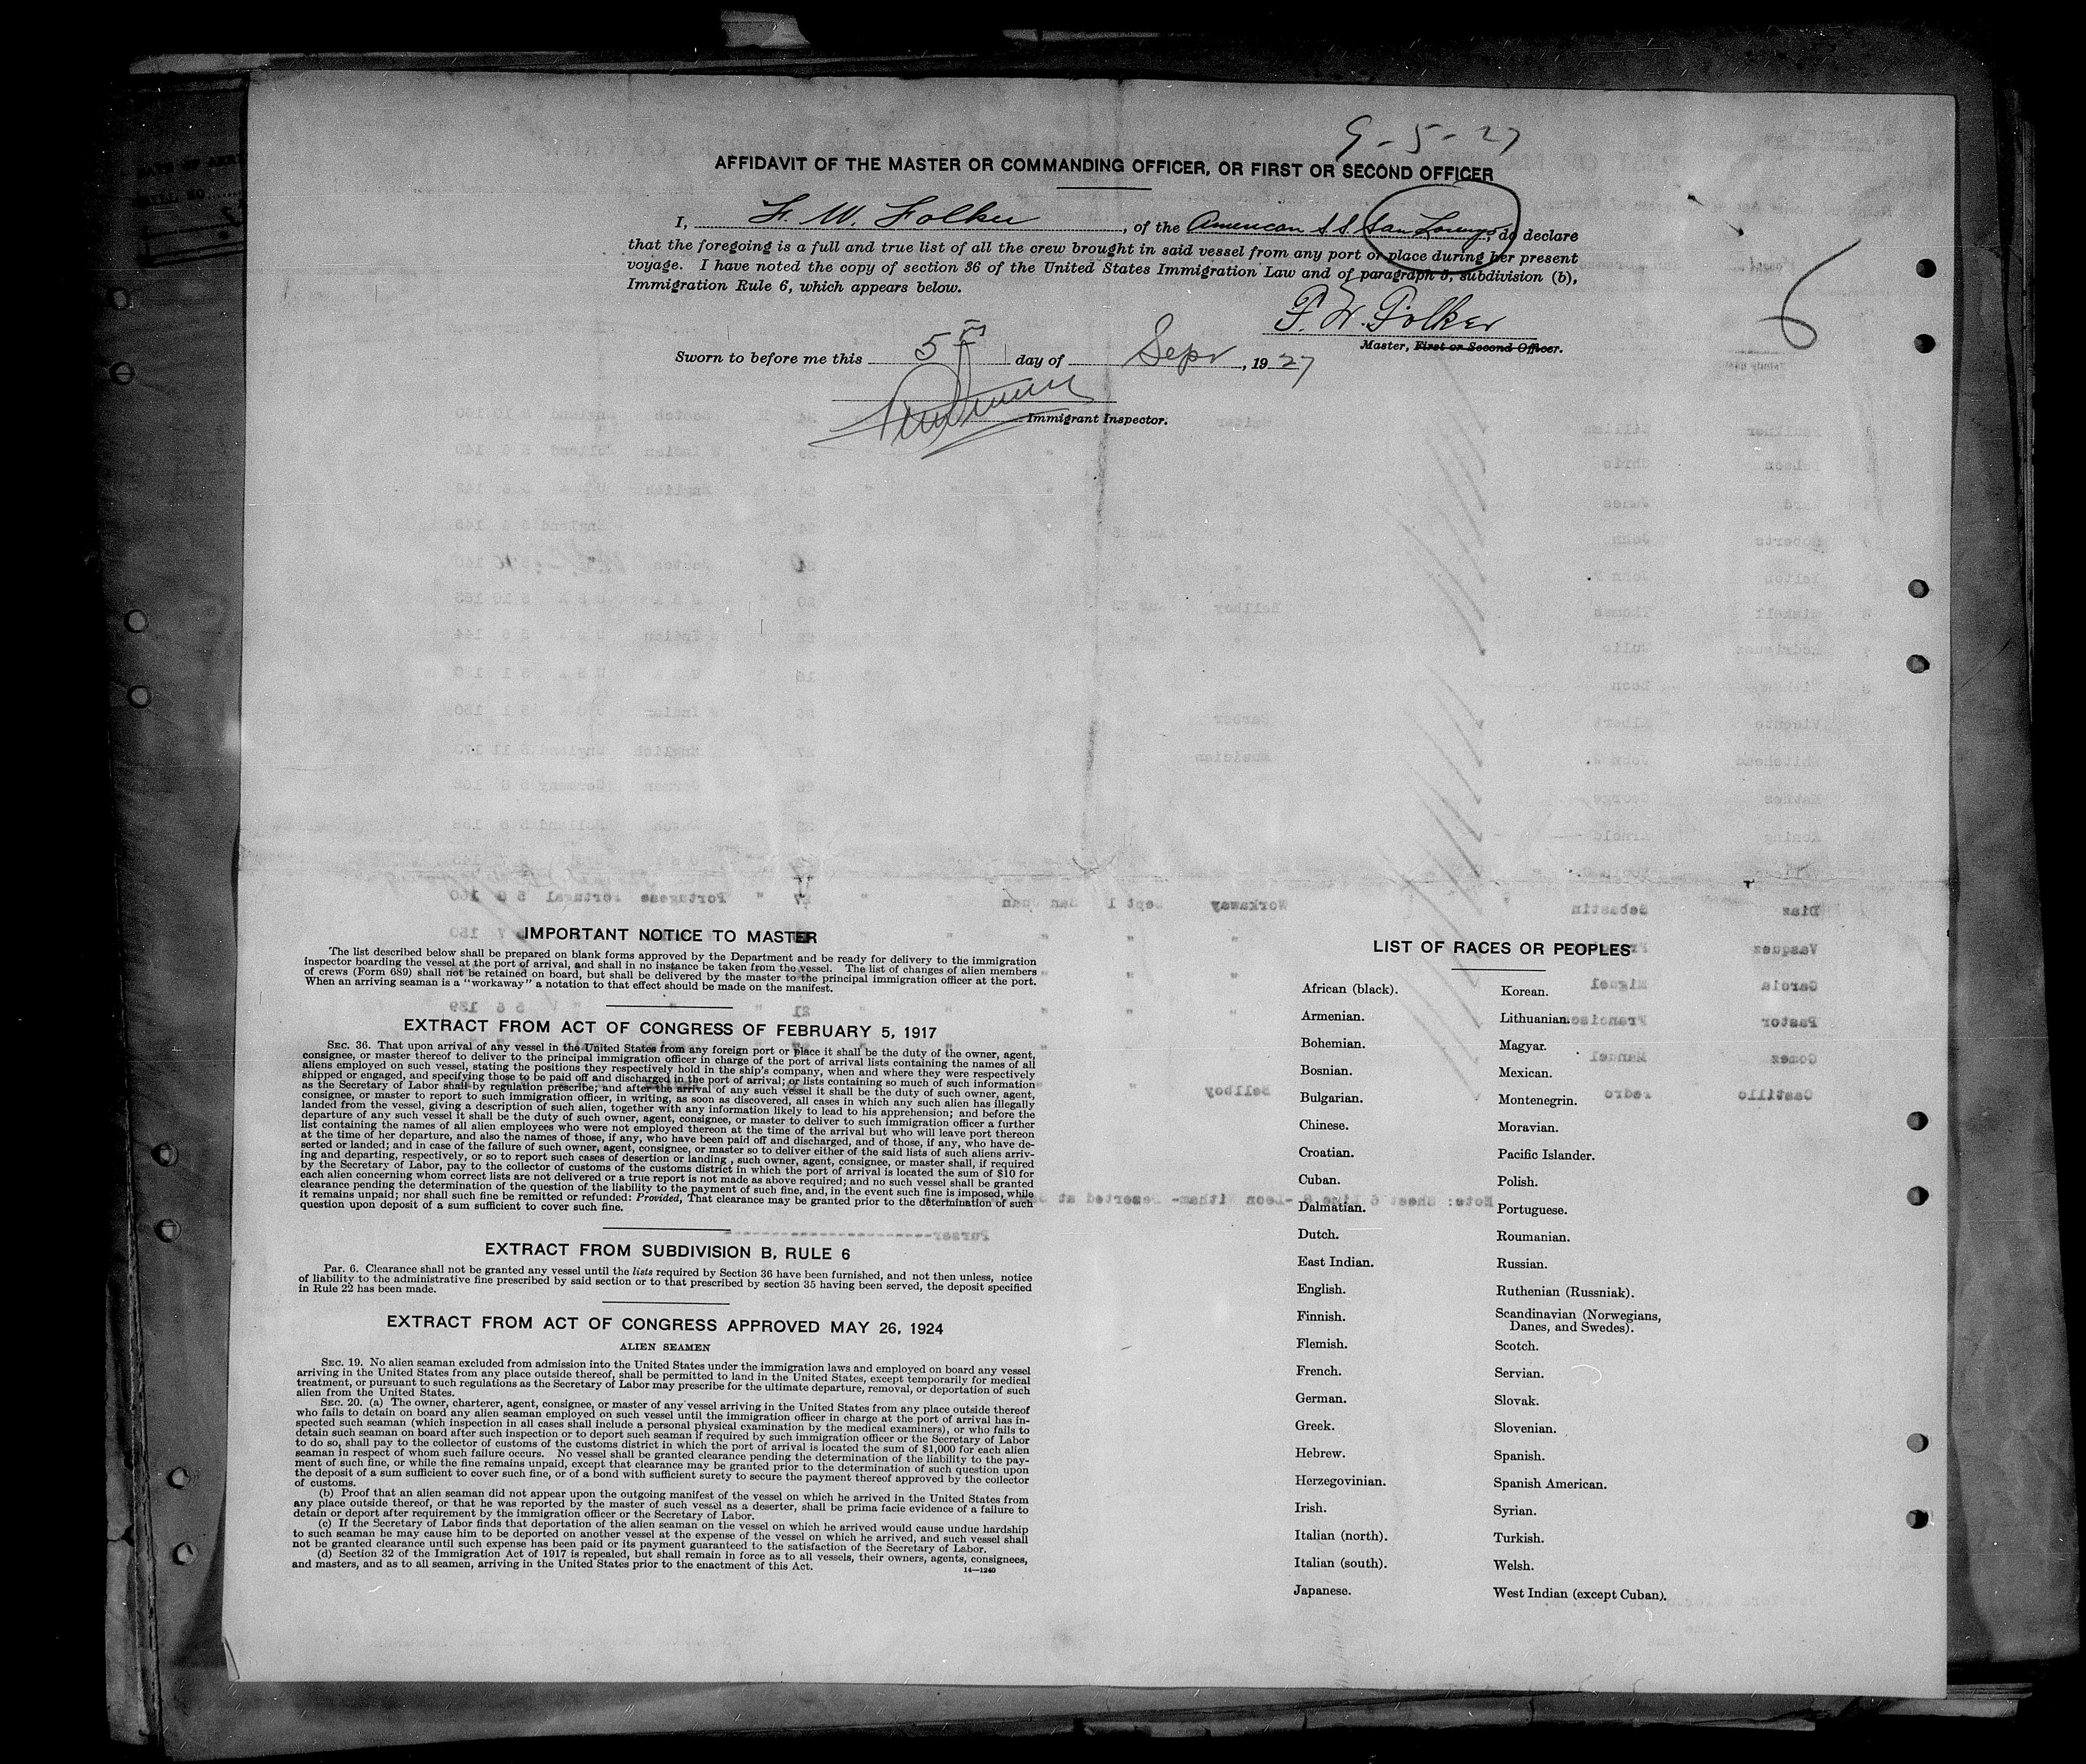 9-5-27
AFFIDAVIT OF THE MASTER OR COMMANDING OFFICER, OR FIRST OR SECOND OFFICER
I, F. W. Folker, of the American SS San Lorenzo, do declare
that the foregoing is a full and true list of all the crew brought in said vessel from any port or place during her present
voyage. I have noted the copy of section 36 of the United States Immigration Law and of paragraph 5, subdivision (b),
Immigration Rule 6, which appears below.
6
F. W. Folker
Master, First or Second Officer.
Sworn to before me this 5th day of Sept, 1927
Immigrant Inspector.
IMPORTANT NOTICE TO MASTER
The list described below shall be prepared on blank forms approved by the Department and be ready for delivery to the immigration
inspector boarding the vessel at the port of arrival, and shall in no instance be taken from the vessel. The list of changes of alien members
of crews (Form 689) shall not be retained on board, but shall be delivered by the master to the principal immigration officer at the port.
When an arriving seaman is a "workaway" a notation to that effect should be made on the manifest.
EXTRACT FROM ACT OF CONGRESS OF FEBRUARY 5, 1917
SEC. 36. That upon arrival of any vessel in the United States from any foreign port or place it shall be the duty of the owner, agent,
consignee, or master thereof to deliver to the principal immigration officer in charge of the port of arrival lists containing the names of all
aliens employed on such vessel, stating the positions they respectively hold in the ship's company, when and where they were respectively
shipped or engaged, and specifying those to be paid off and discharged in the port of arrival; or lists containing so much of such information
as the Secretary of Labor shall by regulation prescribe; and after the arrival of any such vessel it shall be the duty of such owner, agent,
consignee, or master to report to such immigration officer, in writing, as soon as discovered, all cases in which any such alien has illegally
landed from the vessel, giving a description of such alien, together with any information likely to lead to his apprehension; and before the
departure of any such vessel it shall be the duty of such owner, agent, consignee, or master to deliver to such immigration officer a further
list containing the names of all alien employees who were not employed thereon at the time of the arrival but who will leave port thereon
at the time of her departure, and also the names of those, if any, who have been paid off and discharged, and of those, if any, who have de-
serted or landed; and in case of the failure of such owner, agent, consignee, or master so to deliver either of the said lists of such aliens arriv-
ing and departing, respectively, or so to report such cases of desertion or landing, such owner, agent, consignee, or master shall, if required
by the Secretary of Labor, pay to the collector of customs of the customs district in which the port of arrival is located the sum of $10 for
each alien concerning whom correct lists are not delivered or a true report is not made as above required; and no such vessel shall be granted
clearance pending the determination of the question of the liability to the payment of such fine, and, in the event such fine is imposed, while
it remains unpaid; nor shall such fine be remitted or refunded: Provided, That clearance may be granted prior to the determination of such
question upon deposit of a sum sufficient to cover such fine.
EXTRACT FROM SUBDIVISION B, RULE 6
Par. 6. Clearance shall not be granted any vessel until the lists required by Section 36 have been furnished, and not then unless, notice
of liability to the administrative fine prescribed by said section or to that prescribed by section 35 having been served, the deposit specified
in Rule 22 has been made.
EXTRACT FROM ACT OF CONGRESS APPROVED MAY 26, 1924
ALIEN SEAMEN
SEC. 19. No alien seaman excluded from admission into the United States under the immigration laws and employed on board any vessel
arriving in the United States from any place outside thereof, shall be permitted to land in the United States, except temporarily for medical
treatment, or pursuant to such regulations as the Secretary of Labor may prescribe for the ultimate departure, removal, or deportation of such
alien from the United States.
SEC. 20. (a) The owner, charterer, agent, consignee, or master of any vessel arriving in the United States from any place outside thereof
who fails to detain on board any alien seaman employed on such vessel until the immigration officer in charge at the port of arrival has in-
spected such seaman (which inspection in all cases shall include a personal physical examination by the medical examiners), or who fails to
detain such seaman on board after such inspection or to deport such seaman if required by such immigration officer or the Secretary of Labor
to do so, shall pay to the collector of customs of the customs district in which the port of arrival is located the sum of $1,000 for each alien
seaman in respect of whom such failure occurs. No vessel shall be granted clearance pending the determination of the liability to the pay-
ment of such fine, or while the fine remains unpaid, except that clearance may be granted prior to the determination of such question upon
the deposit of a sum sufficient to cover such fine, or of a bond with sufficient surety to secure the payment thereof approved by the collector
of customs.
(b) Proof that an alien seaman did not appear upon the outgoing manifest of the vessel on which he arrived in the United States from
any place outside thereof, or that he was reported by the master of such vessel as a deserter, shall be prima facie evidence of a failure to
detain or deport after requirement by the immigration officer or the Secretary of Labor.
(c) If the Secretary of Labor finds that deportation of the alien seaman on the vessel on which he arrived would cause undue hardship
to such seaman he may cause him to be deported on another vessel at the expense of the vessel on which he arrived, and such vessel shall
not be granted clearance until such expense has been paid or its payment guaranteed to the satisfaction of the Secretary of Labor.
(d) Section 32 of the Immigration Act of 1917 is repealed, but shall remain in force as to all vessels, their owners, agents, consignees,
and masters, and as to all seamen, arriving in the United States prior to the enactment of this Act.
14—1240
LIST OF RACES OR PEOPLES
African (black).
Armenian.
Bohemian.
Bosnian.
Bulgarian.
Chinese.
Croatian.
Cuban.
Dalmatian.
Dutch.
East Indian.
English.
Finnish.
Flemish.
French.
German.
Greek.
Hebrew.
Herzegovinian.
Irish.
Italian (north).
Italian (south).
Japanese.
Korean.
Lithuanian.
Magyar.
Mexican.
Montenegrin.
Moravian.
Pacific Islander.
Polish.
Portuguese.
Roumanian.
Russian.
Ruthenian (Russniak).
Scandinavian (Norwegians,
Danes, and Swedes).
Scotch.
Servian.
Slovak.
Slovenian.
Spanish.
Spanish American.
Syrian.
Turkish.
Welsh.
West Indian (except Cuban).